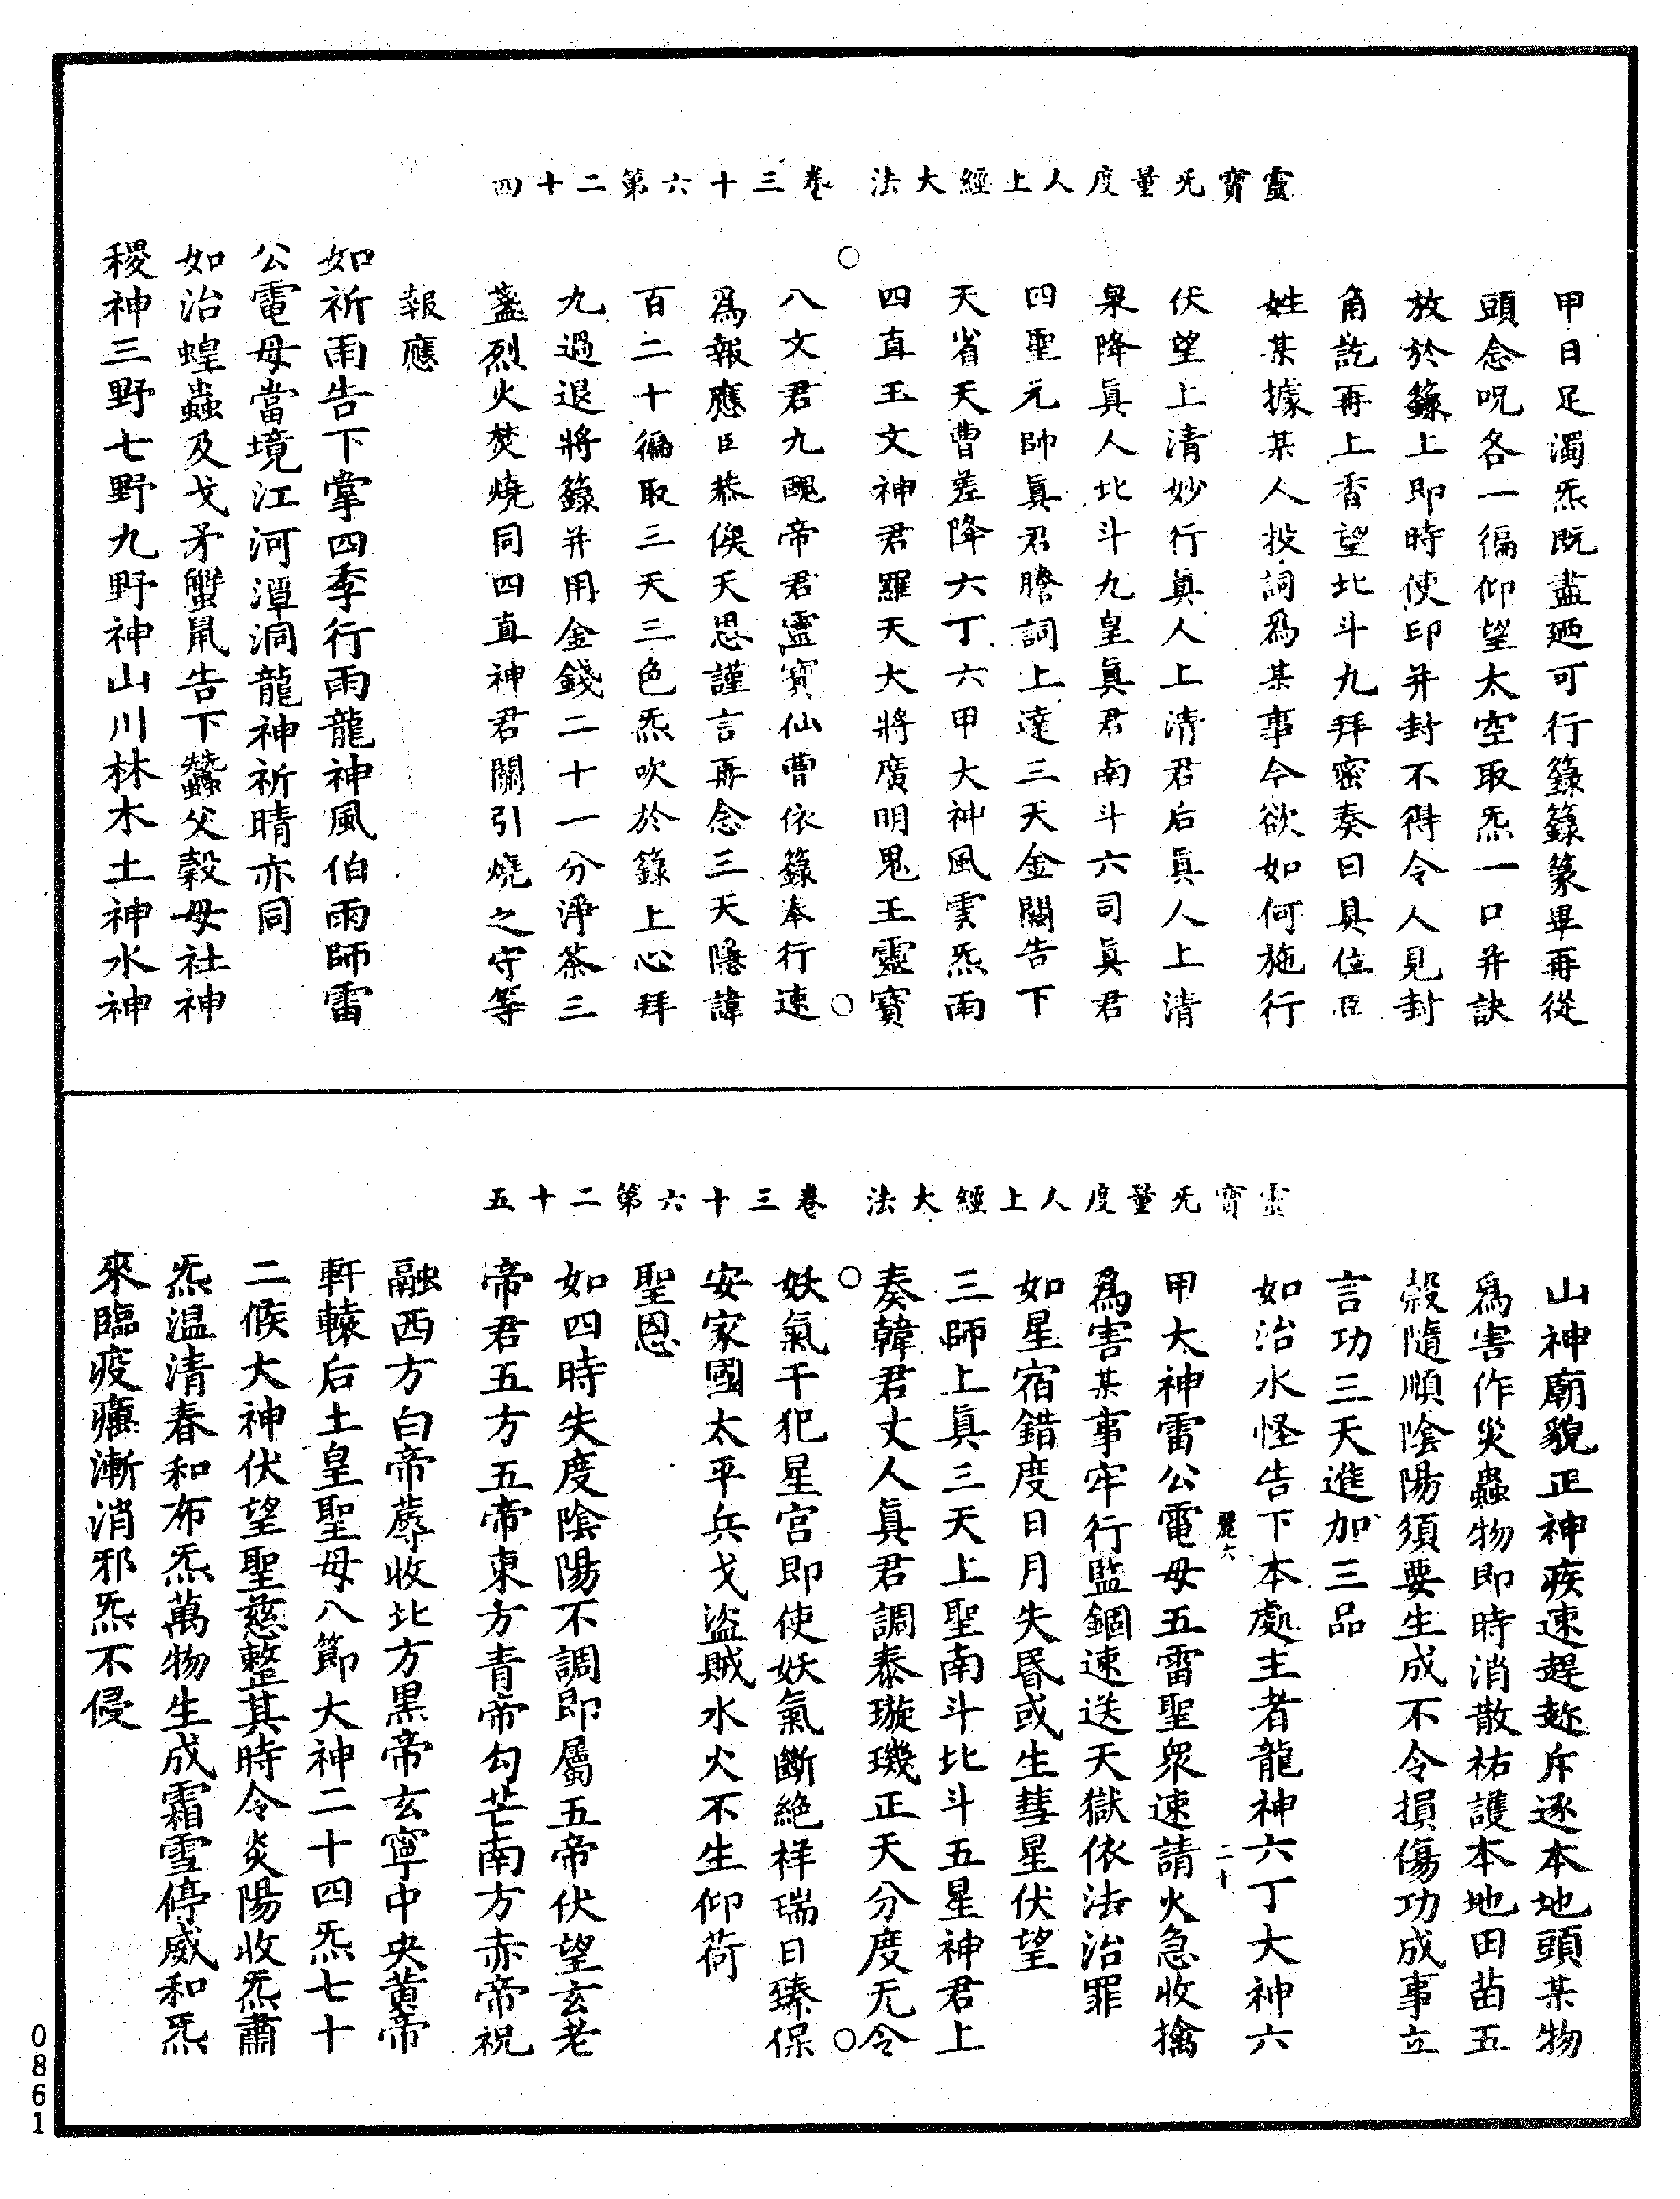 靈寶无量度人上經大法　卷三十六第二十四
甲日足濁炁既盡廼可行籙籙篆畢再從
頭念呪各一徧仰望太空取炁一口并訣
放於籙上即時使印并封不得令人見封
角訖再上香望北斗九拜密奏曰具位臣
姓某據某人投詞爲某事今欲如何施行
伏望上清妙行眞人上清君后眞人上清
泉降眞人北斗九皇眞君南斗六司眞君
四聖元帥眞君謄詞上達三天金闕告下
天省天曹差降六丁六甲大神風雲炁雨
四直玉文神君羅天大將廣明鬼王靈寶
八文君九醜帝君靈寶仙曹依籙奉行速
爲報應臣恭俟天恩謹言再念三天隱諱
百二十徧取三天三色炁吹於籙上心拜
九過退將籙并用金錢二十一分淨茶三
盞烈火焚燒同四直神君關引燒之守等
報應
如祈雨告下掌四季行雨龍神風伯雨師雷
公電母當境江河潭洞龍神祈晴亦同
如治蝗蟲及戈矛蟹鼠告下蠶父穀母社神
稷神三野七野九野神山川林木土神水神
靈寶无量度人上經大法　卷三十六第二十五
山神廟貌正神疾速趕趂斥逐本地頭某物
爲害作災蟲物即時消散祐護本地田苗五
穀隨順陰陽須要生成不令損傷功成事立
言功三天進加三品
如治水怪告下本處主者龍神六丁大神六
麗六　二十
甲大神雷公電母五雷聖衆速請火急收擒
爲害某事牢行監錮速送天獄依法治罪
如星宿錯度日月失昬或生彗星伏望
三師上眞三天上聖南斗北斗五星神君上
奏韓君丈人眞君調泰璇璣正天分度无令
妖氣干犯星宮即使妖氣斷絶祥瑞日臻保
安家國太平兵戈盜賊水火不生仰荷
聖恩
如四時失度陰陽不調即屬五帝伏望玄老
帝君五方五帝東方青帝勾芒南方赤帝祝
融西方白帝蓐收北方黑帝玄寧中央黃帝
軒轅后土皇聖母八節大神二十四炁七十
二候大神伏望聖慈整其時令炎陽收炁肅
炁温清春和布炁萬物生成霜雪停威和炁
來臨疫癘漸消邪炁不侵
0861